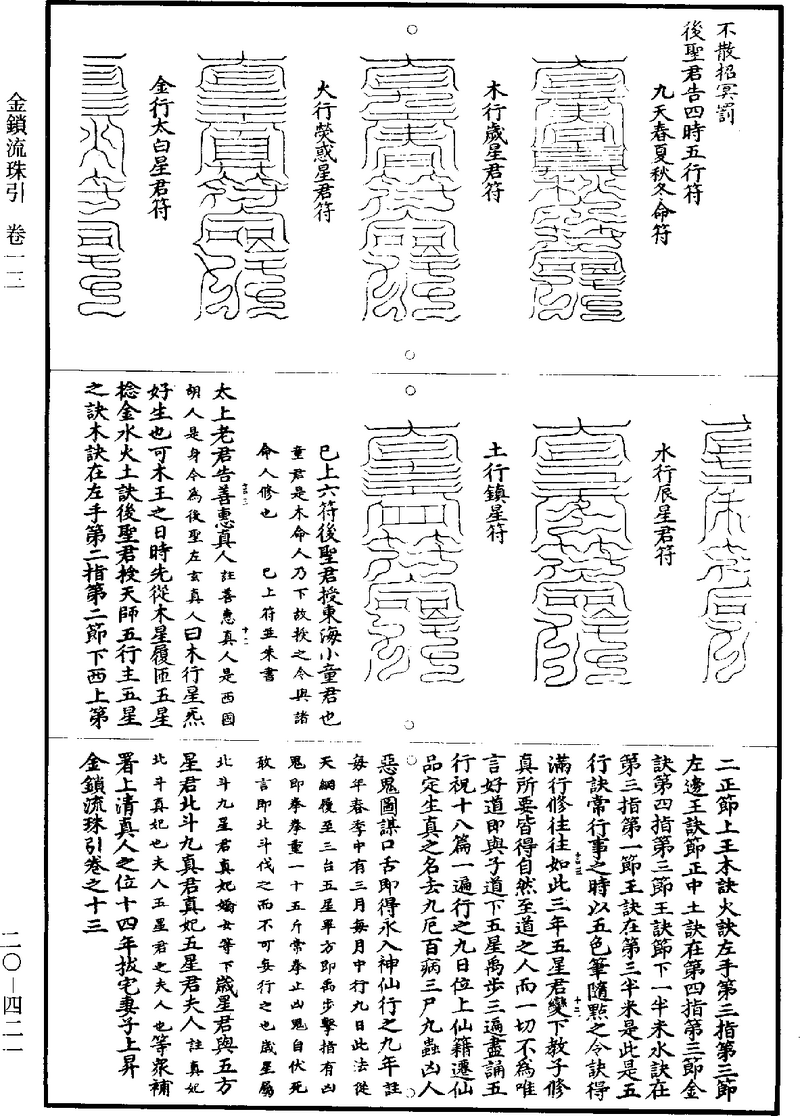 不散招冥罰
後聖君告四時五行符
九天春夏秋冬命符
木行歲星君符
火行熒惑星君符
金行太白星君符
水行辰星君符
土行鎮星符
巳上六符後聖君授東海小童君也
童君是木命人乃下故授之令與諸
命人修也　巳上符並朱書
太上老君告善惠真人註善惠真人是西國
胡人是身今為後聖左玄真人曰木行星炁
好生也可木王之日時先從木星履匝五星
捻金水火土訣後聖君授天師五行主五星
之訣木訣在左手第二指第二節下西上第
二正節上王木訣火訣左手第三指第三節
左邊王訣節正中土訣在第四指第三節金
訣第四指第三節王訣節下一半米水訣在
第三指第一節王訣在第三半米是此是五
行訣常行事之時以五色筆隨點之令訣得
滿行修往往如此三年五星君變下教子修
真所要皆得自然至道之人而一切不為唯
言好道即與子道下五星禹步三遍盡誦五
行祝十八篇一遍行之九日位上仙籍遷仙
品定生真之名去九厄百病三尸九蟲凶人
惡鬼圖謀口舌即得永入神仙行之九年註
每年春季中有三月每月中行九日此法從
天綱履至三台五星畢方即禹步擊指有凶
鬼即拳拳重一十五斤常拳止凶鬼自伏死
敢言即北斗伐之而不可妄行之也歲星屬
北斗九星君真妃嬌女等下歲星君與五方
星君北斗九真君真妃五星君夫人註真妃
北斗真妃也夫人五星君之夫人也等眾補
署上清真人之位十四年拔宅妻子上昇
金鎖流珠引卷之十三
金鎖流珠引　卷一三
二〇－四二一